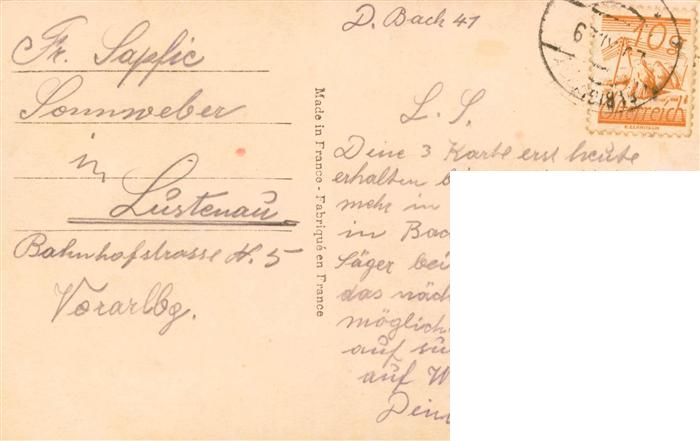 Fr. Sapfic
Sonnweber
in
Lustenau
Bahnhofstrasse N. 5
Vorarlbg.
Made in France - Fabriqué en France
D. Bach 41
10 g
Österreich
L. S.
Deine 3 Karte erst heute
erhalten
mehr in
in Bac
Jäger bei
das näch
möglich
auf
auf W
Dein